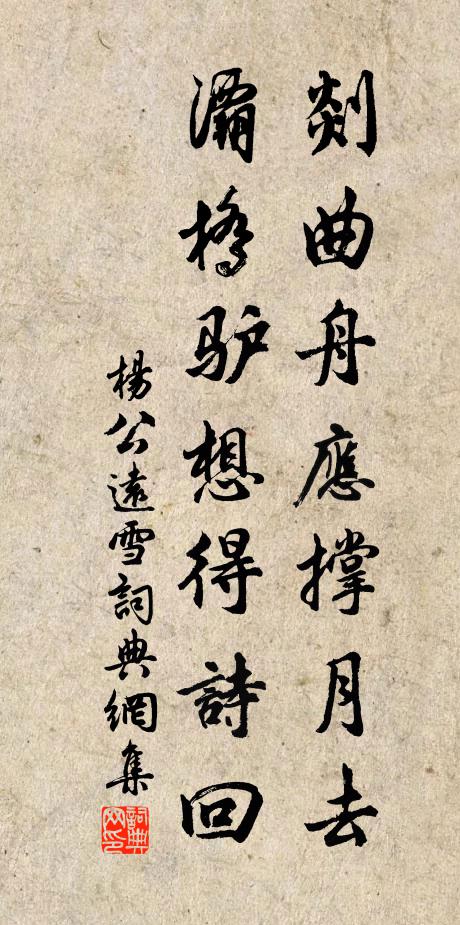 剡曲舟應撑月去
灞橋驴想得詩回
楊公遠雪詞典網集
詞典网印